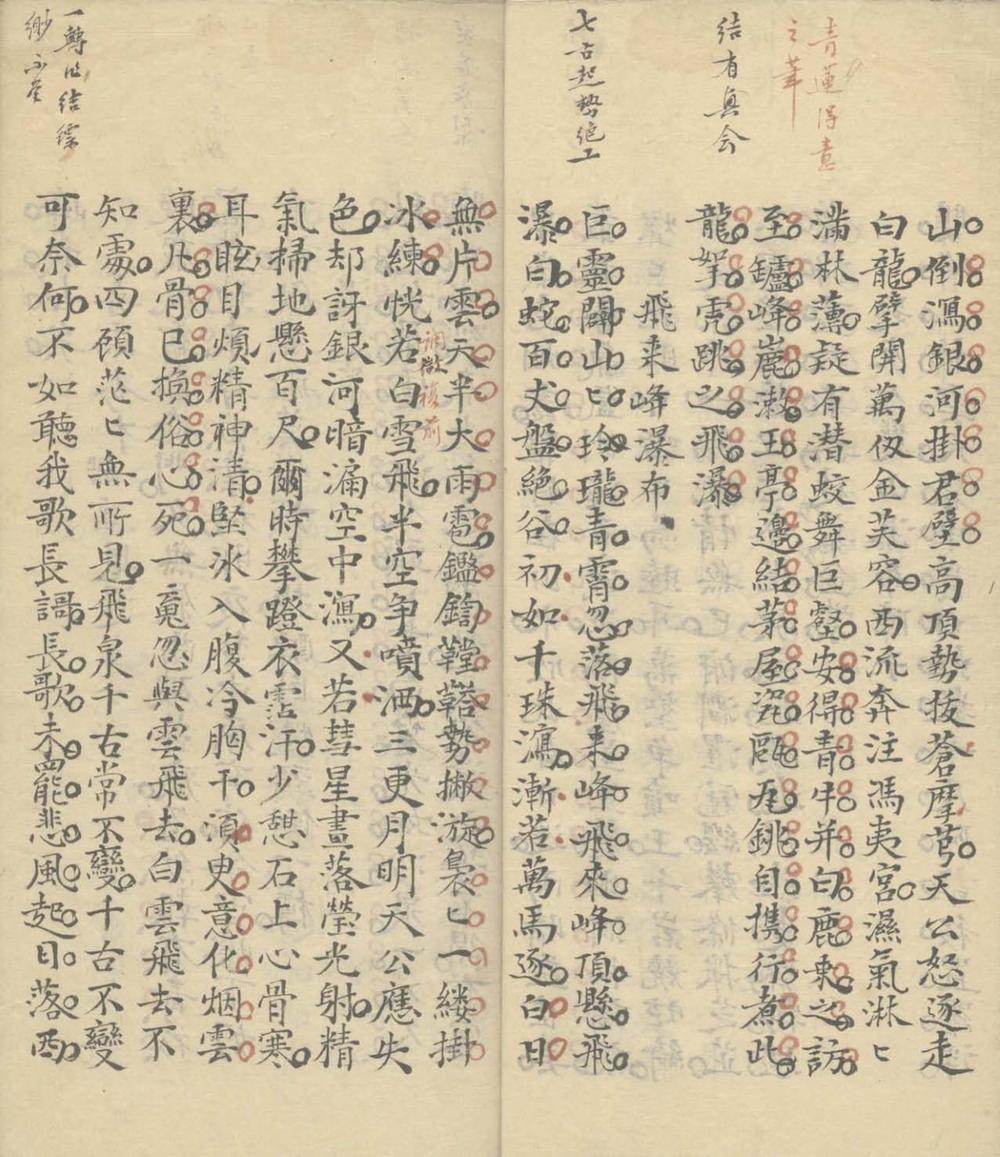 青蓮得意
之筆
結有真会
七古起勢絕工
一轉作結縹
緲不盡
山倒瀉銀河掛君壁高頂勢拔蒼摩芎天公怒逐走
白龍擘開萬仭金芙容西流奔注馮夷宮濕氣淋〻
滿林薄疑有潜蛟舞巨壑安得青牛并白鹿乗之訪
至鑪峰麓漱玉亭邊結茅屋瓷甌瓦銚自携行煮此
龍拏虎跳之飛瀑
飛来峰瀑布
巨靈闢山〻玲瓏青霄忽落飛来峰飛來峰頂懸飛
瀑白蛇百丈盤絕谷初如千珠瀉漸若萬馬逐白日
無片雲天半大雨雹鏜鞳勢撇漩裊〻一縷掛
冰練恍若白雪飛半空争噴洒三更月明天公應失
色却訝銀河暗漏空中瀉又若彗星晝落瑩光射精
氣掃地懸百尺爾時攀蹬衣霑汗少憩石上心骨寒
耳眩目煩精神清堅冰入腹冷胸干湏臾意化烟雲
裏凡骨已換俗心死一䰟忽與雲飛去白雲飛去不
知處四顧茫〻無所見飛泉千古常不變千古不變
可奈何不如聽我歌長謌長歌未罷悲風起日落西